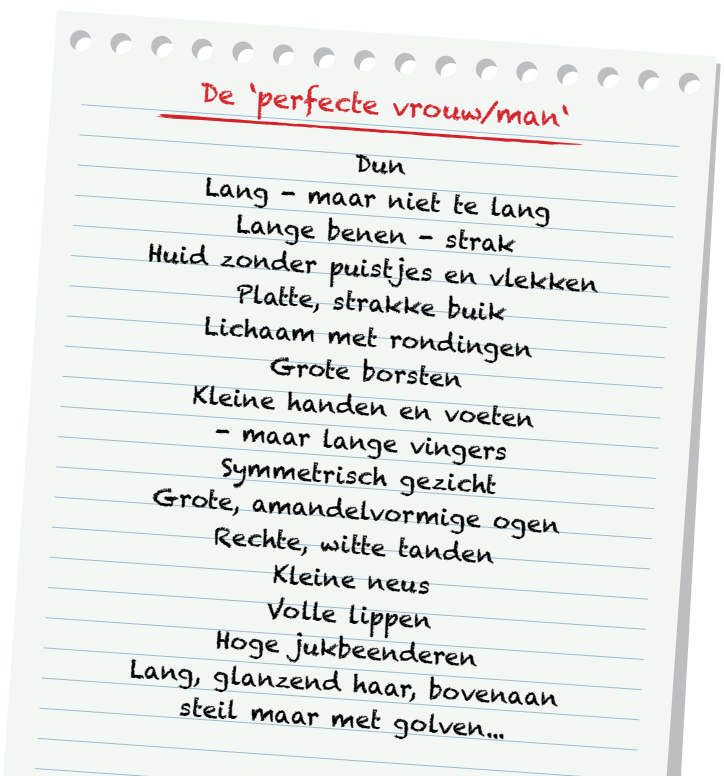 De 'perfecte vrouw/man'
Dun
Lang - maar niet te lang
Lange benen - strak
Huid zonder puistjes en vlekken
Platte, strakke buik
Lichaam met rondingen
Grote borsten
Kleine handen en voeten
- maar lange vingers
Symmetrisch gezicht
Grote, amandelvormige ogen
Rechte, witte tanden
Kleine neus
Volle lippen
Hoge jukbeenderen
Lang, glanzend haar, bovenaan
steil maar met golven...